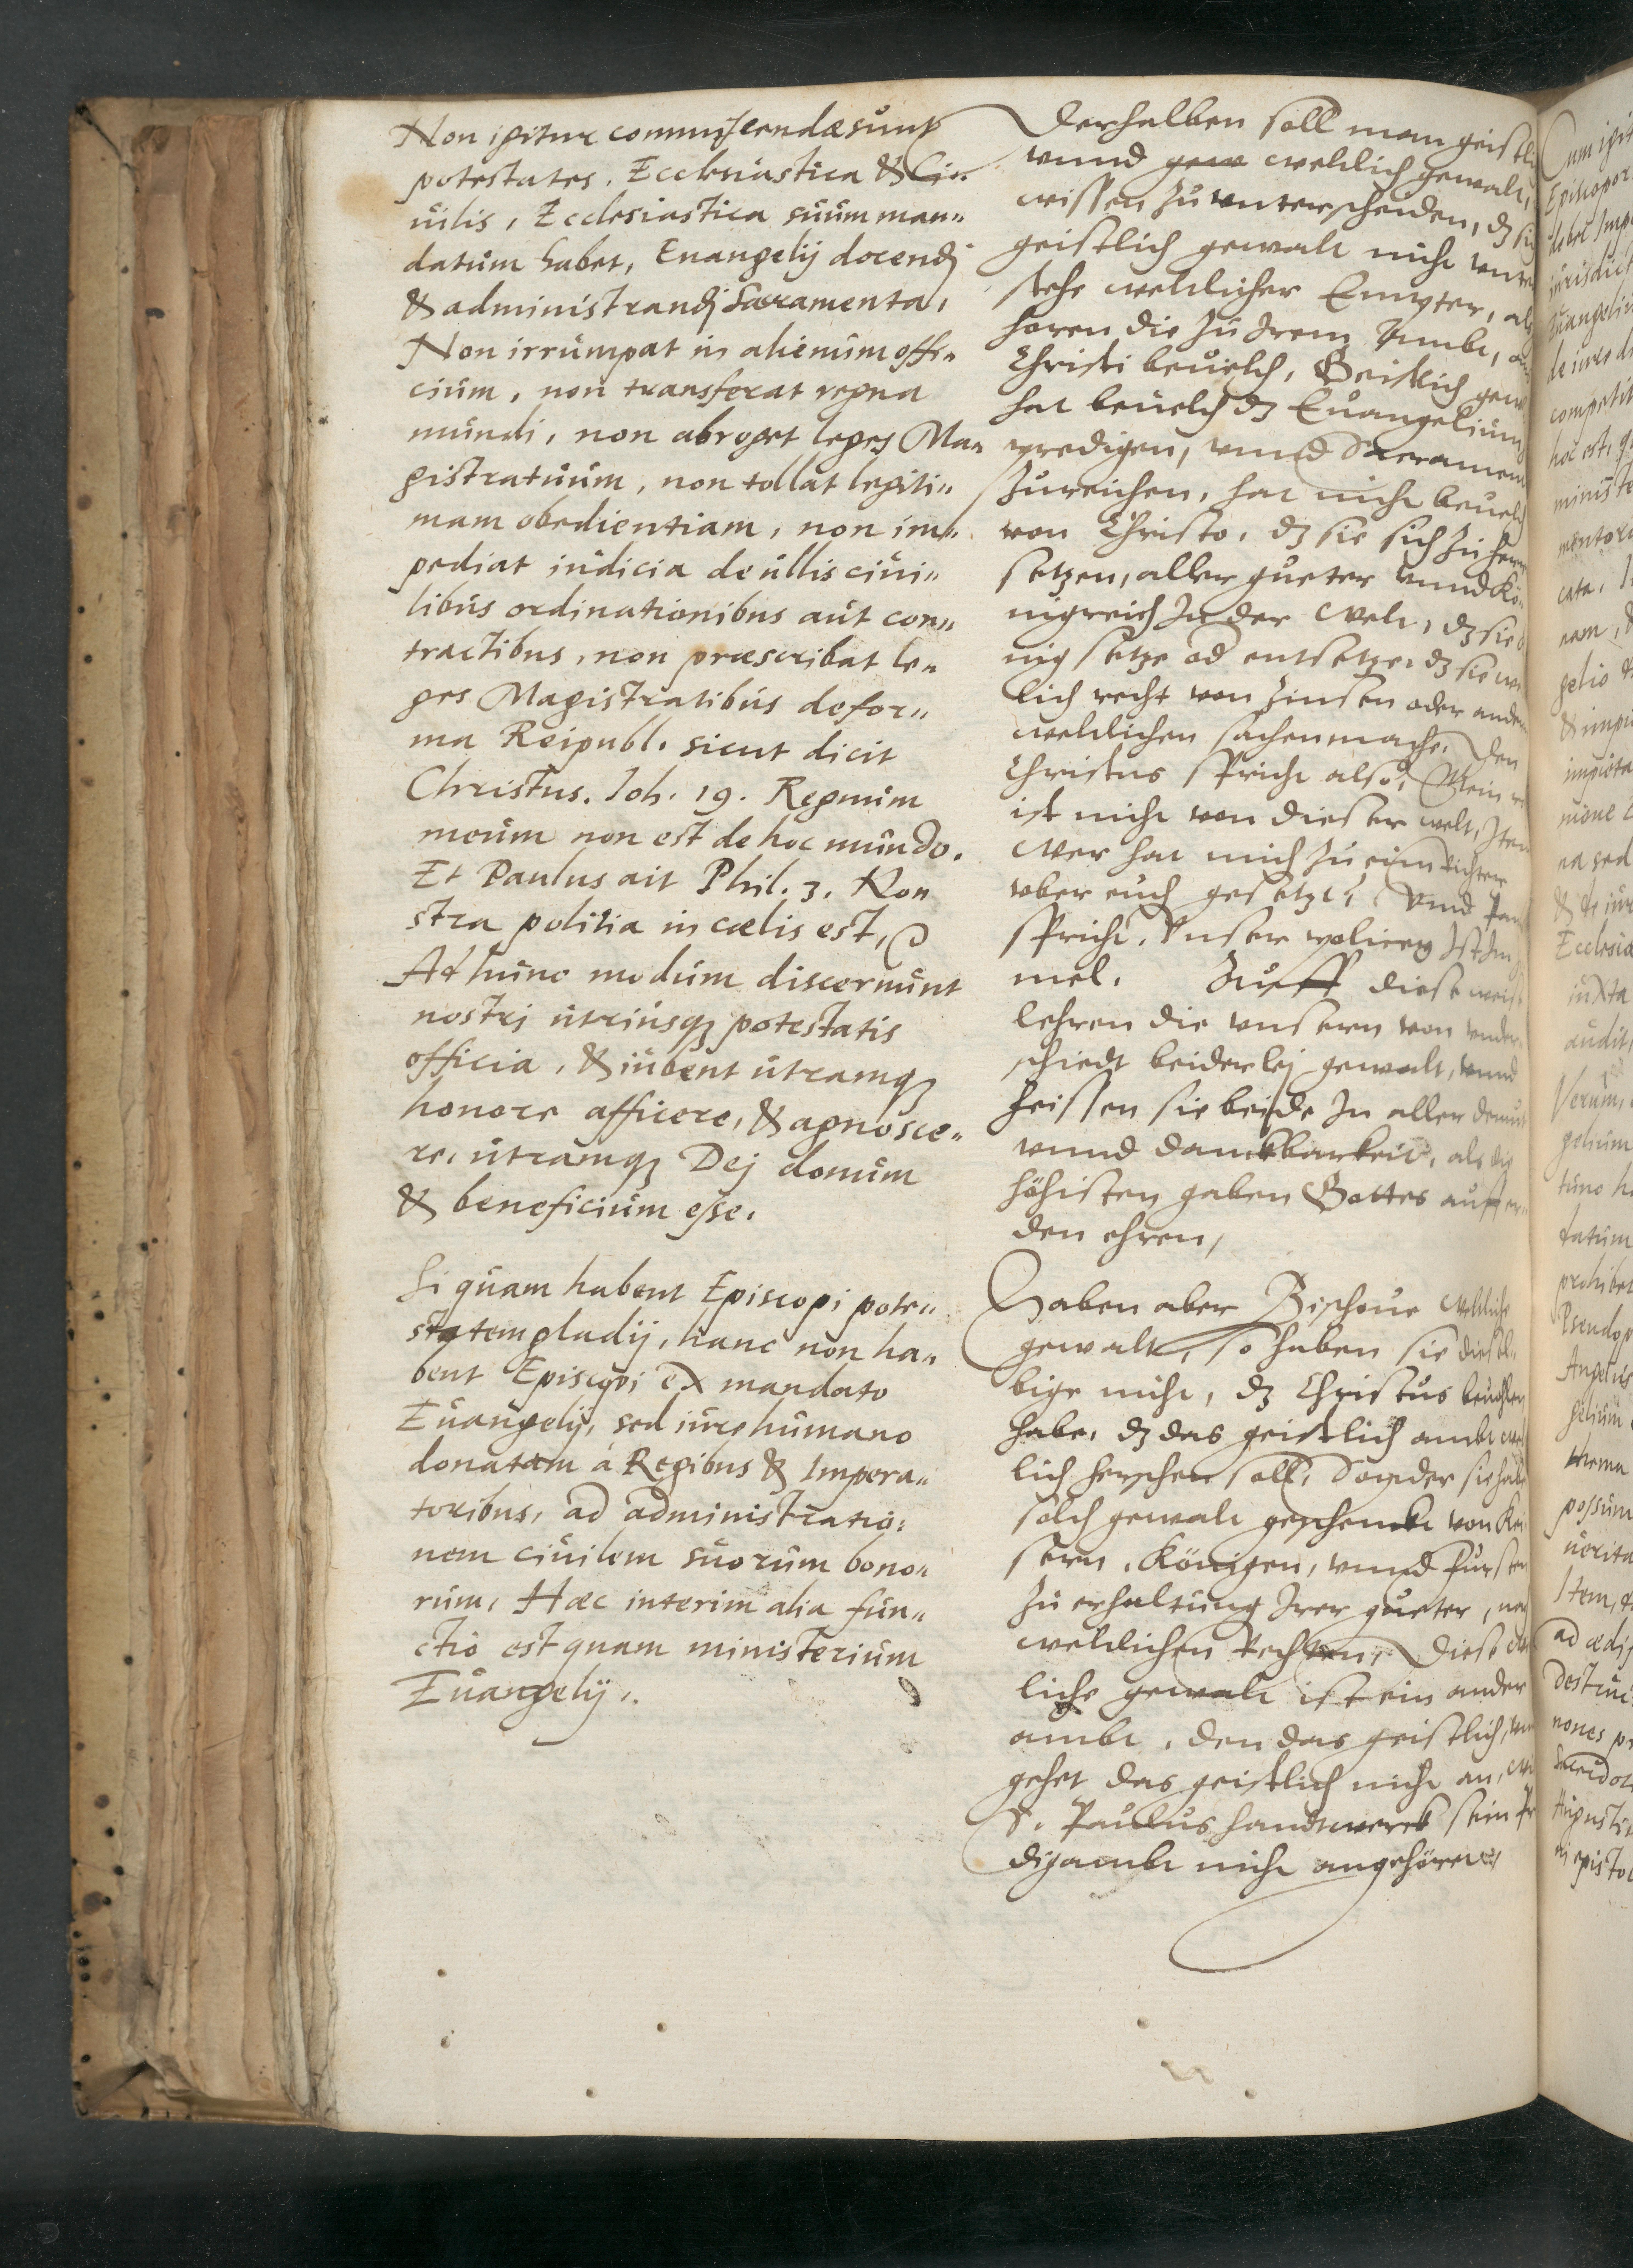 Non igitur commiscendæ sunt
potestates, Ecclesiastica & Ci„
uilis, Ecclesiastica suum man„
datum habet, Euangelij docendj
& administrandj Sacramenta,
Non irrumpat in alienum offi„
cium, non transferat regna
mundi, non abroget leges Ma„
gistratuum, non tollat legiti„
mam obedientiam, non im„
pediat iudicia de ullis ciui„
libus ordinationibus aut con„
tractibus, non præscribat le„
ges Magistratibus de for„
ma Reipubl. sicut dicit
Christus. Joh. 19. Regnum
meum non est de hoc mundo.
Et Paulus ait Phil. 3. Non
stra politia in cœlis est,
Ad hunc modum discernunt
nostrj utriusq₃ potestatis
officia, & iubent utramq₃
honore afficere, & agnosce„
re, utramq₃ Dej donum
& beneficium esse.
Si quam habent Episcopi pote„
statem gladij, hanc non ha„
bent Episcopi ex mandato
Euangelij, sed iure humano
donatam à Regibus & Impera„
toribus, ad administratio:
nem ciuilem suorum bono„
rum, Hæc interim alia fun„
ctio est quam ministerium
Euangelij.
Derhalben soll man geistli
vnnd gew weltlich gewalt,
wissen zu vnterscheiden, dz die
geistlich gewalt nicht vnter
stehe weltlicher Empter, als
horen die zu Irem Ambt, on
Christi beuelch, Geistlich gew
hat beuelch dz Euangelium
predigen, vnnd Sacrament
zureichen, hat nicht beuelch
von Christo, dz sie sich zu herrn
setzen, aller gueter vnnd Kö„
nigreich In der Welt, dz sie
nig setze od entsetze, dz sie we
lich recht von Zinsen oder ander
weltlichen sachen mache, Den
Christus spricht also, Mein re
ist nicht von dieser welt, Item
Wer hat mich zu eim Richter
vber euch gesetzt, Vnnd Pau
spricht, Vnser policey Ist Im
mel. Auff diese weise
lehren die vnsern von vnder
schiedt beiderlej gewalt, vnnd
heissen sie beide In aller demut
vnnd danckbarkeit, als die
höhisten gaben Gottes auff er„
den ehren,
Haben aber Bischoue Weltliche
gewalt, so haben sie diesel„
bige nicht, dz Christus beuohlen
habe, dz das geistlich ambt welt
lich herschen soll, Sonder sie habe
solch gewalt geschenckt von Kei
sern, Königen, vnnd fursten
zu erhaltung Irer gueter, nach
weltlichen Rechten, Diese Welt
liche gewalt ist ein ander
ambt, den das geistlich, vn
gehet das geistlich nicht an, wie
S. Paulus handtwerck sein Pre
digambt nicht angehöret
Episcopor
Euangeliu
competit
hoc est, q
ministe
cata,
gelio &
Ecclesia
iuxta
audit,
Verum,
gelium
tunc h
datum
prohibet
Pseudop
Angelus
possum
uerita
Item,
ad ædif
destruc
nones pr
Augusti
epistol